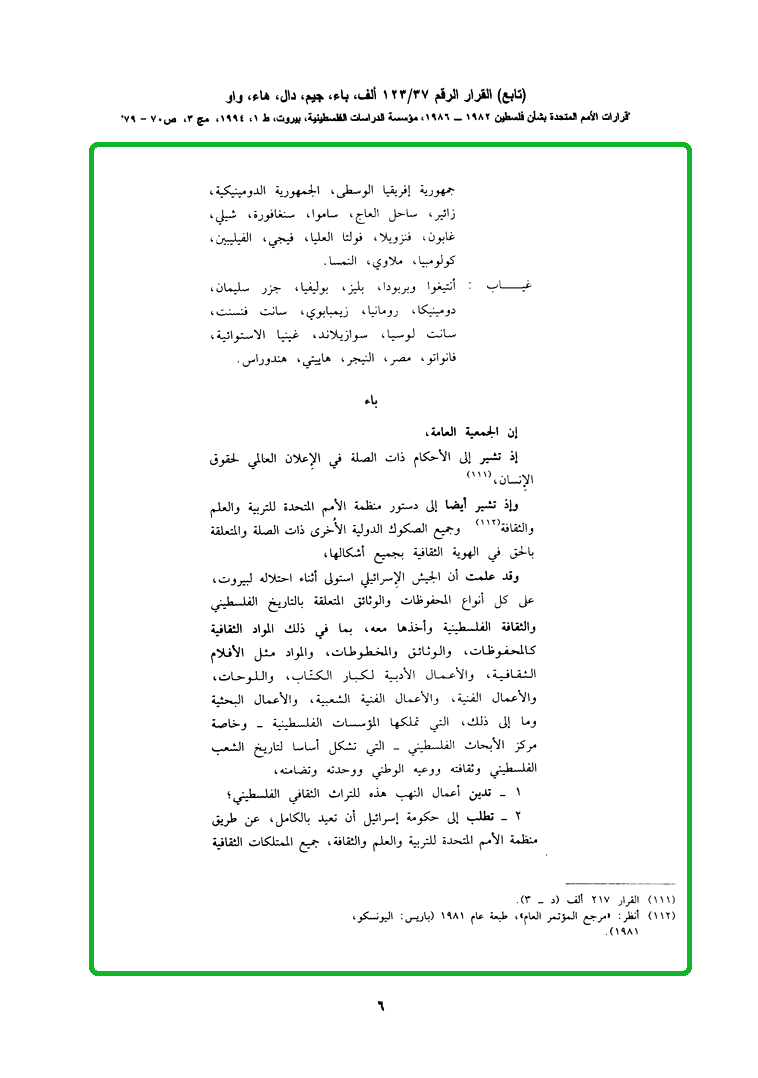 (تابع) القرار الرقم ١٢٣/٣٧ ألف، باء، جيم، دال، هاء، واو
"قرارات الأمم المتحدة بشأن فلسطين ١٩٨٢ ـ ١٩٨٦، مؤسسة الدراسات الفلسطينية، بيروت، ط ١، ١٩٩٤، مج ٣، ص ٧٠ - ٧٩"
جمهورية إفريقيا الوسطى، الجمهورية الدومينيكية،
زائير، ساحل العاج، ساموا، سنغافورة، شيلي،
غابون، فنزويلا، فولتا العليا، فيجي، الفيليبين،
كولومبيا، ملاوي، النمسا.
غيـــاب : أنتيغوا وبربودا، بليز، بوليفيا، جزر سليمان،
دومينيكا، رومانيا، زيمبابوي، سانت فنسنت،
سانت لوسيا، سوازيلاند، غينيا الاستوائية،
فانواتو، مصر، النيجر، هاييتي، هندوراس.
باء
إن الجمعية العامة،
إذ تشير إلى الأحكام ذات الصلة في الإعلان العالمي لحقوق
الإنسان،(١١١)
وإذ تشير أيضا إلى دستور منظمة الأمم المتحدة للتربية والعلم
والثقافة(١١٢) وجميع الصكوك الدولية الأُخرى ذات الصلة والمتعلقة
بالحق في الهوية الثقافية بجميع أشكالها،
وقد علمت أن الجيش الإسرائيلي استولى أثناء احتلاله لبيروت،
على كل أنواع المحفوظات والوثائق المتعلقة بالتاريخ الفلسطيني
والثقافة الفلسطينية وأخذها معه، بما في ذلك المواد الثقافية
كالمحفوظات، والوثائق والمخطوطات، والمواد مثل الأفلام
الثقافية، والأعمال الأدبية لكبار الكتّاب، واللوحات،
والأعمال الفنية، والأعمال الفنية الشعبية، والأعمال البحثية
وما إلى ذلك، التي تملكها المؤسسات الفلسطينية ـ وخاصة
مركز الأبحاث الفلسطيني ـ التي تشكل أساسا لتاريخ الشعب
الفلسطيني وثقافته ووعيه الوطني ووحدته وتضامنه،
١ ـ تدين أعمال النهب هذه للتراث الثقافي الفلسطيني؛
٢ ـ تطلب إلى حكومة إسرائيل أن تعيد بالكامل، عن طريق
منظمة الأمم المتحدة للتربية والعلم والثقافة، جميع الممتلكات الثقافية
(١١١) القرار ٢١٧ ألف (د ـ ٣).
(١١٢) أنظر: «مرجع المؤتمر العام»، طبعة عام ١٩٨١ (باريس: اليونسكو،
١٩٨١).
٦